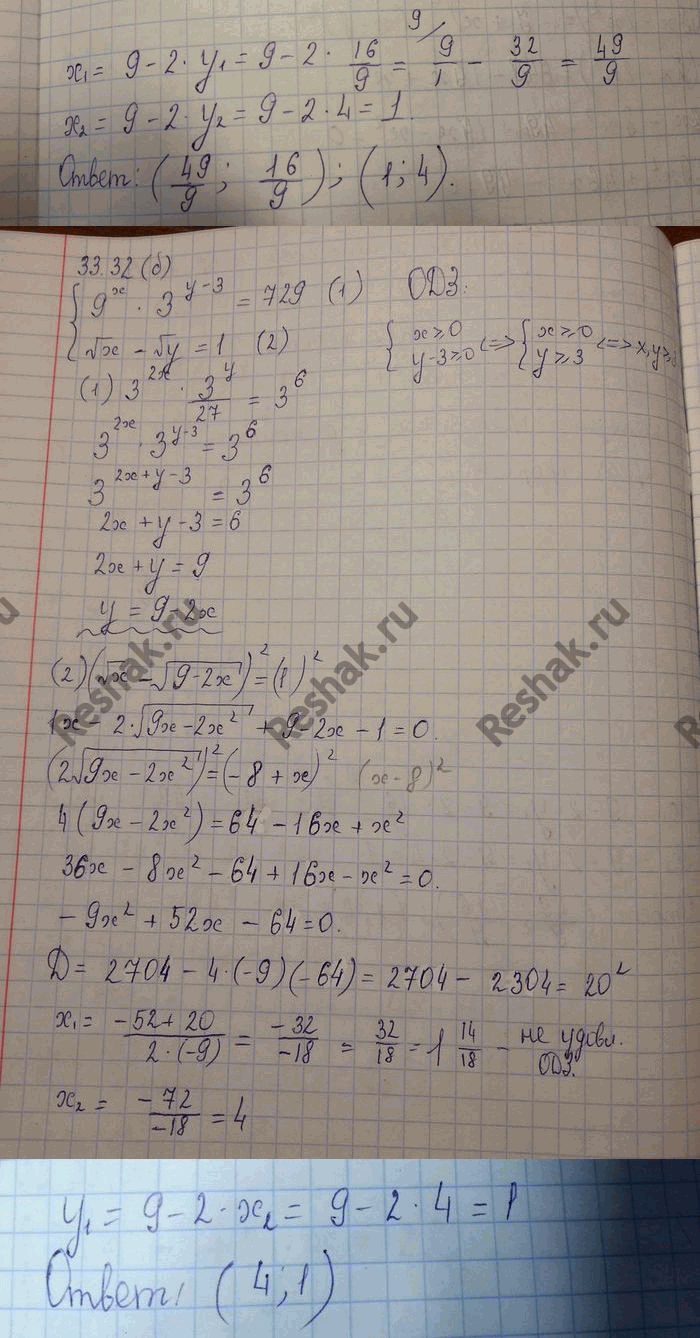 x₁ = 9 − 2 · y₁ = 9 − 2 · 16/9 = ⁹⁄ 9/1 − 32/9 = 49/9
x₂ = 9 − 2 · y₂ = 9 − 2 · 4 = 1.
Ответ: (49/9; 16/9); (1; 4).
33.32 (б)
{ 9^x · 3^(y−3) = 729 (1) ОДЗ:
√x − √y = 1 (2) { x ≥ 0 y−3 ≥ 0 <=> { x ≥ 0 y ≥ 3 <=> x, y ≥
(1) 3^(2x) · 3^y/27 = 3^6
3^(2x) · 3^(y−3) = 3^6
3^(2x+y−3) = 3^6
2x + y − 3 = 6
2x + y = 9
y = 9 − 2x
(2) (√x − √(9−2x))² = (1)²
1x − 2·√(9x − 2x²) + 9 − 2x − 1 = 0.
(2√(9x − 2x²))² = (−8 + x)² (x−8)²
4(9x − 2x²) = 64 − 16x + x²
36x − 8x² − 64 + 16x − x² = 0.
− 9x² + 52x − 64 = 0.
D = 2704 − 4·(−9)(−64) = 2704 − 2304 = 20²
x₁ = (−52 + 20)/(2·(−9)) = −32/−18 = 32/18 = 1 14/18 − не удовл. ОДЗ.
x₂ = −72/−18 = 4
y₁ = 9 − 2 · x₂ = 9 − 2 · 4 = 1
Ответ: (4; 1)
Reshak.ru
Reshak.ru
Reshak.ru